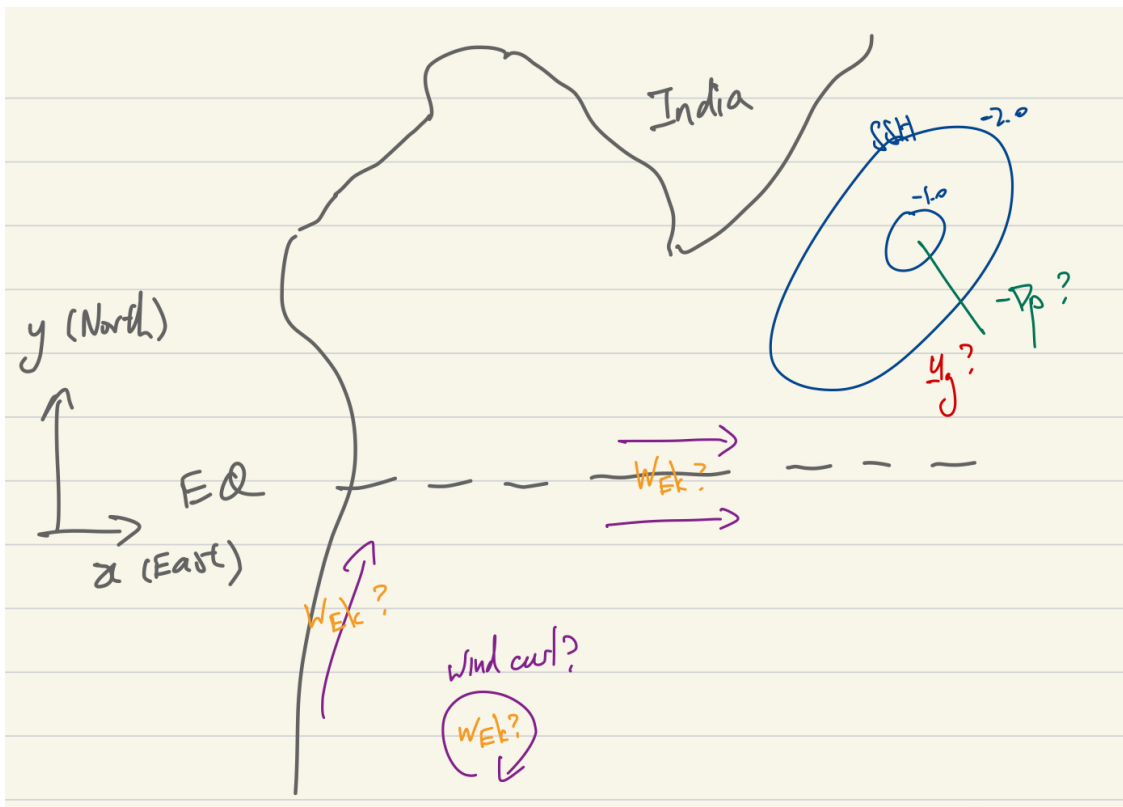 India
SSH
-2.0
-1.0
-∇p ?
u_g ?
y (North)
EQ
x (East)
W_Ek ?
W_Ek ?
wind curl?
W_Ek ?